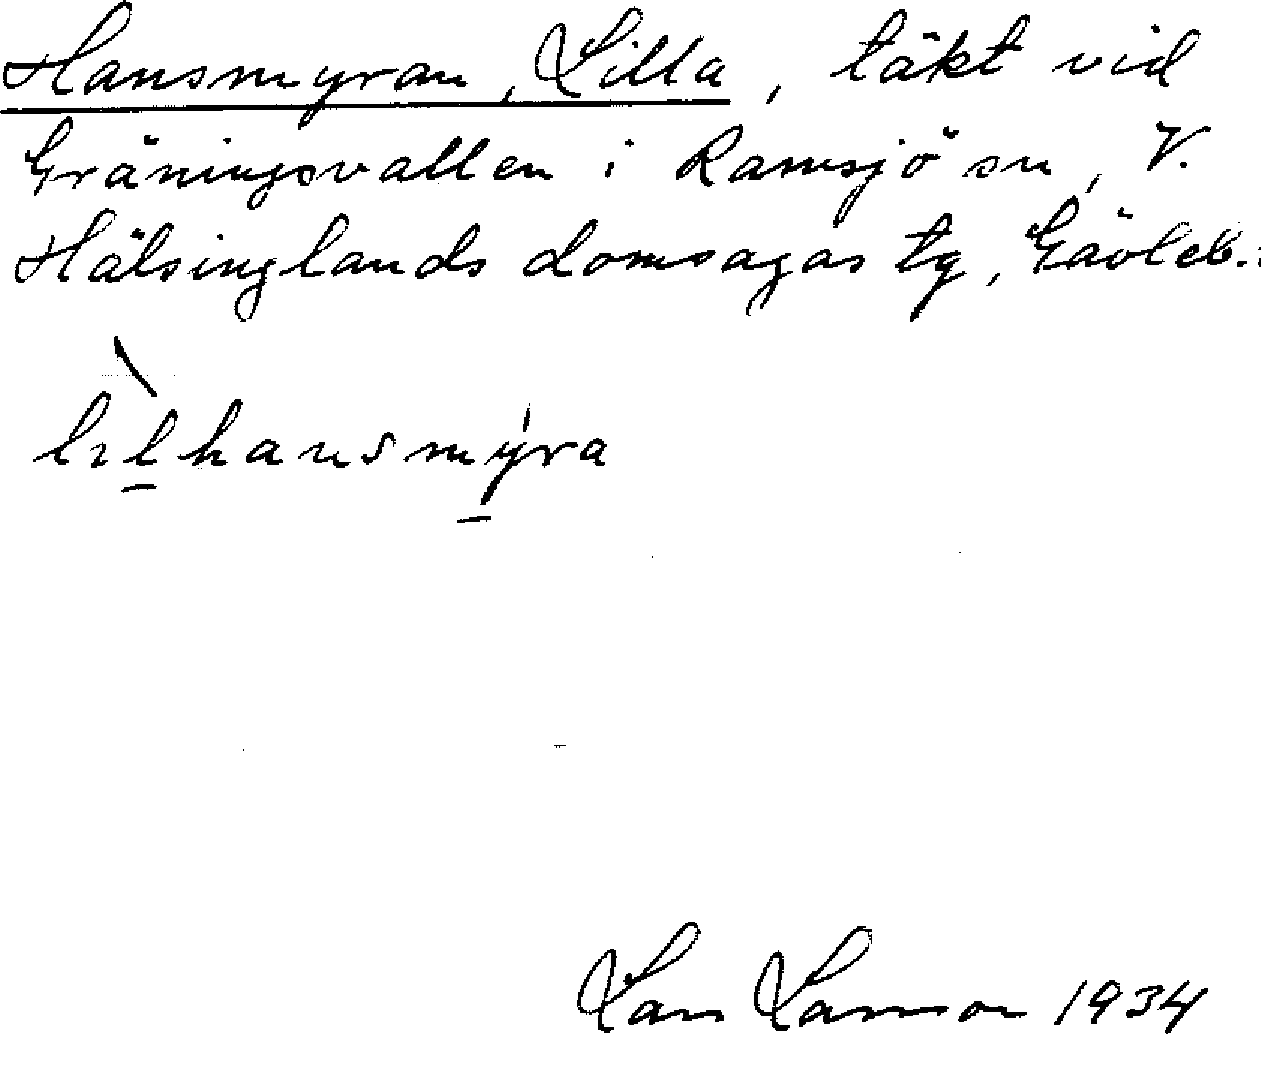 Hansmyran, Lilla, täkt vid
Gräningsvallen i Ramsjö sn, V.
Hälsinglands domsagas tg, Gävleb.:
lìlhansmýra
Lars Larsson 1934